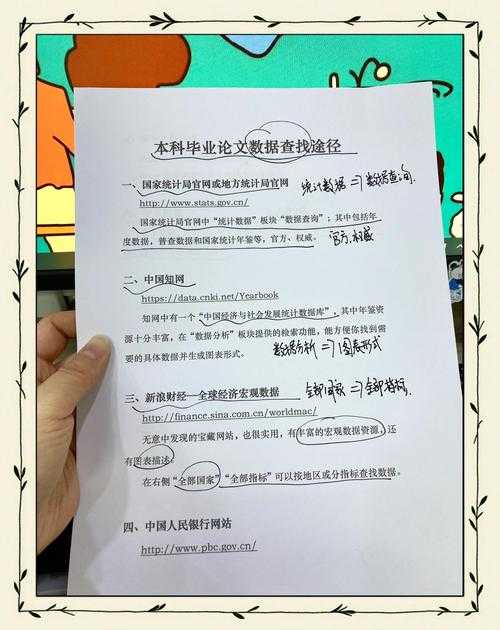 本科毕业论文数据查找途径
一、国家统计局官网或地方统计局官网 统计数据 ⇒ 数据查询.
http://www.stats.gov.cn/
国家统计局官网中“统计数据”板块“数据查询”；其中包括年
度数据，普查数据和国家统计年鉴等，官方、权威。 官方.权威
二、中国知网
https://data.cnki.net/Yearbook
知网中有一个“中国经济与社会发展统计数据库”，其中年鉴资
源十分丰富，在“数据分析”板块提供的检索功能，能方便你找到需
要的具体数据并生成图表形式。 数据分析 ⇒ 图表形式
三、新浪财经—全球经济宏观数据 全部国家 ⇒ 全部指标.
http://finance.sina.com.cn/worldmac/
无意中发现的宝藏网站，也很实用，有丰富的宏观数据资源，还
有图表描述。
在右侧“全部国家”“全部指标”可以按地区或分指标查找数据。
四、中国人民银行网站
http://www.pbc.gov.cn/